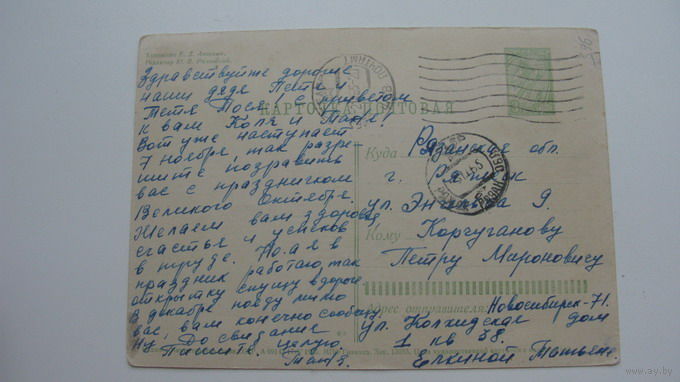 Здравствуйте дорогие
наши дядя Петя и
Тётя Тося! С приветом
к вам Коля и Таня!
Вот уже наступает
7 ноября, так разре-
шите поздравить
вас с праздником
Великого Октября.
Желаем вам здоровья,
счастья и успехов
в труде. Но. а я в
праздник работаю, так
открытку спишу вдороге.
В декабре поеду мимо
вас, вам конечно сообщу.
Ну До свидание
Пишите. целую.
Таня.
КАРТОЧКА ПОЧТОВАЯ
Куда Рязанская обл.
г. Ряжск
ул. Энгельса 9.
Кому Корчуганову
Петру Мироновичу
Адрес отправителя: Новосибирск-71.
ул. Колхидская дом
1 кв 38.
Елкиной Татьяне
ay.by